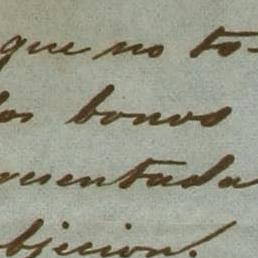 que no to-
los bonos
esentada
bjecion.